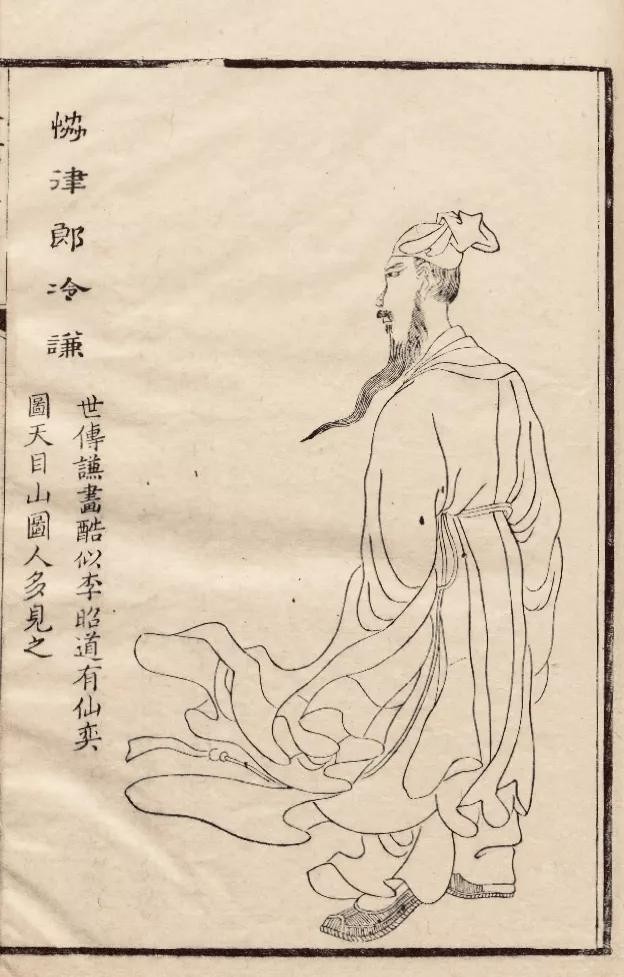 協律郎冷謙
世傳謙畫酷似李昭道有仙奕
圖天目山圖人多見之